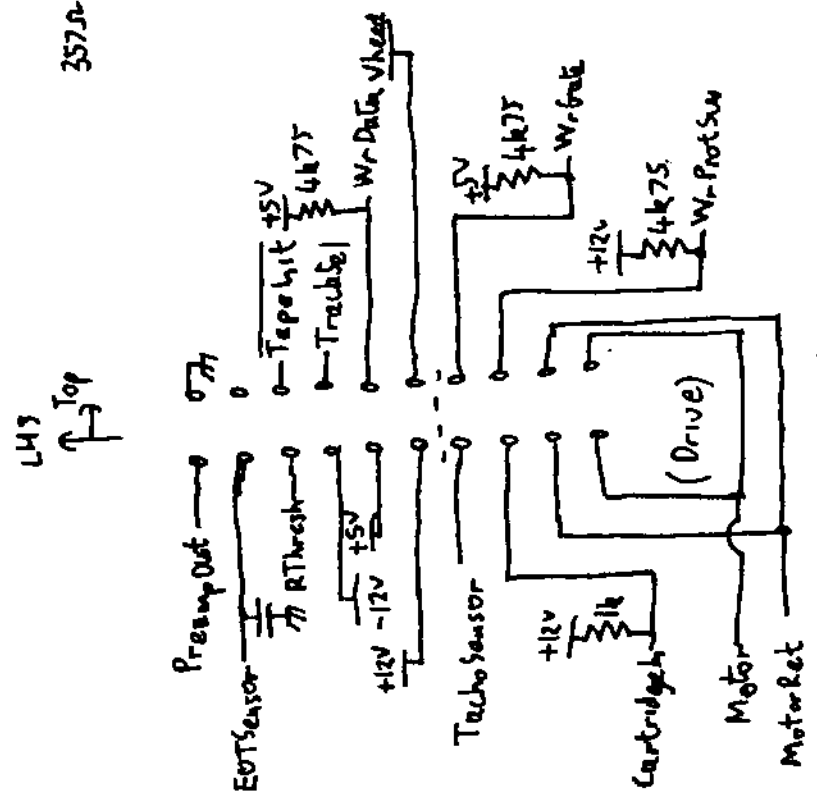 LHS
Top
357Ω
PreampOut
EOTSensor
RThresh
-12V
+5V
+12V
TachoSensor
+12V
1k
CartridgeIn
Motor
MotorRet
(Drive)
TrackSel
+5V
4k75
WrData
Vhead
+5V
4k75
WrGate
+12V
4k75
WrProtSw